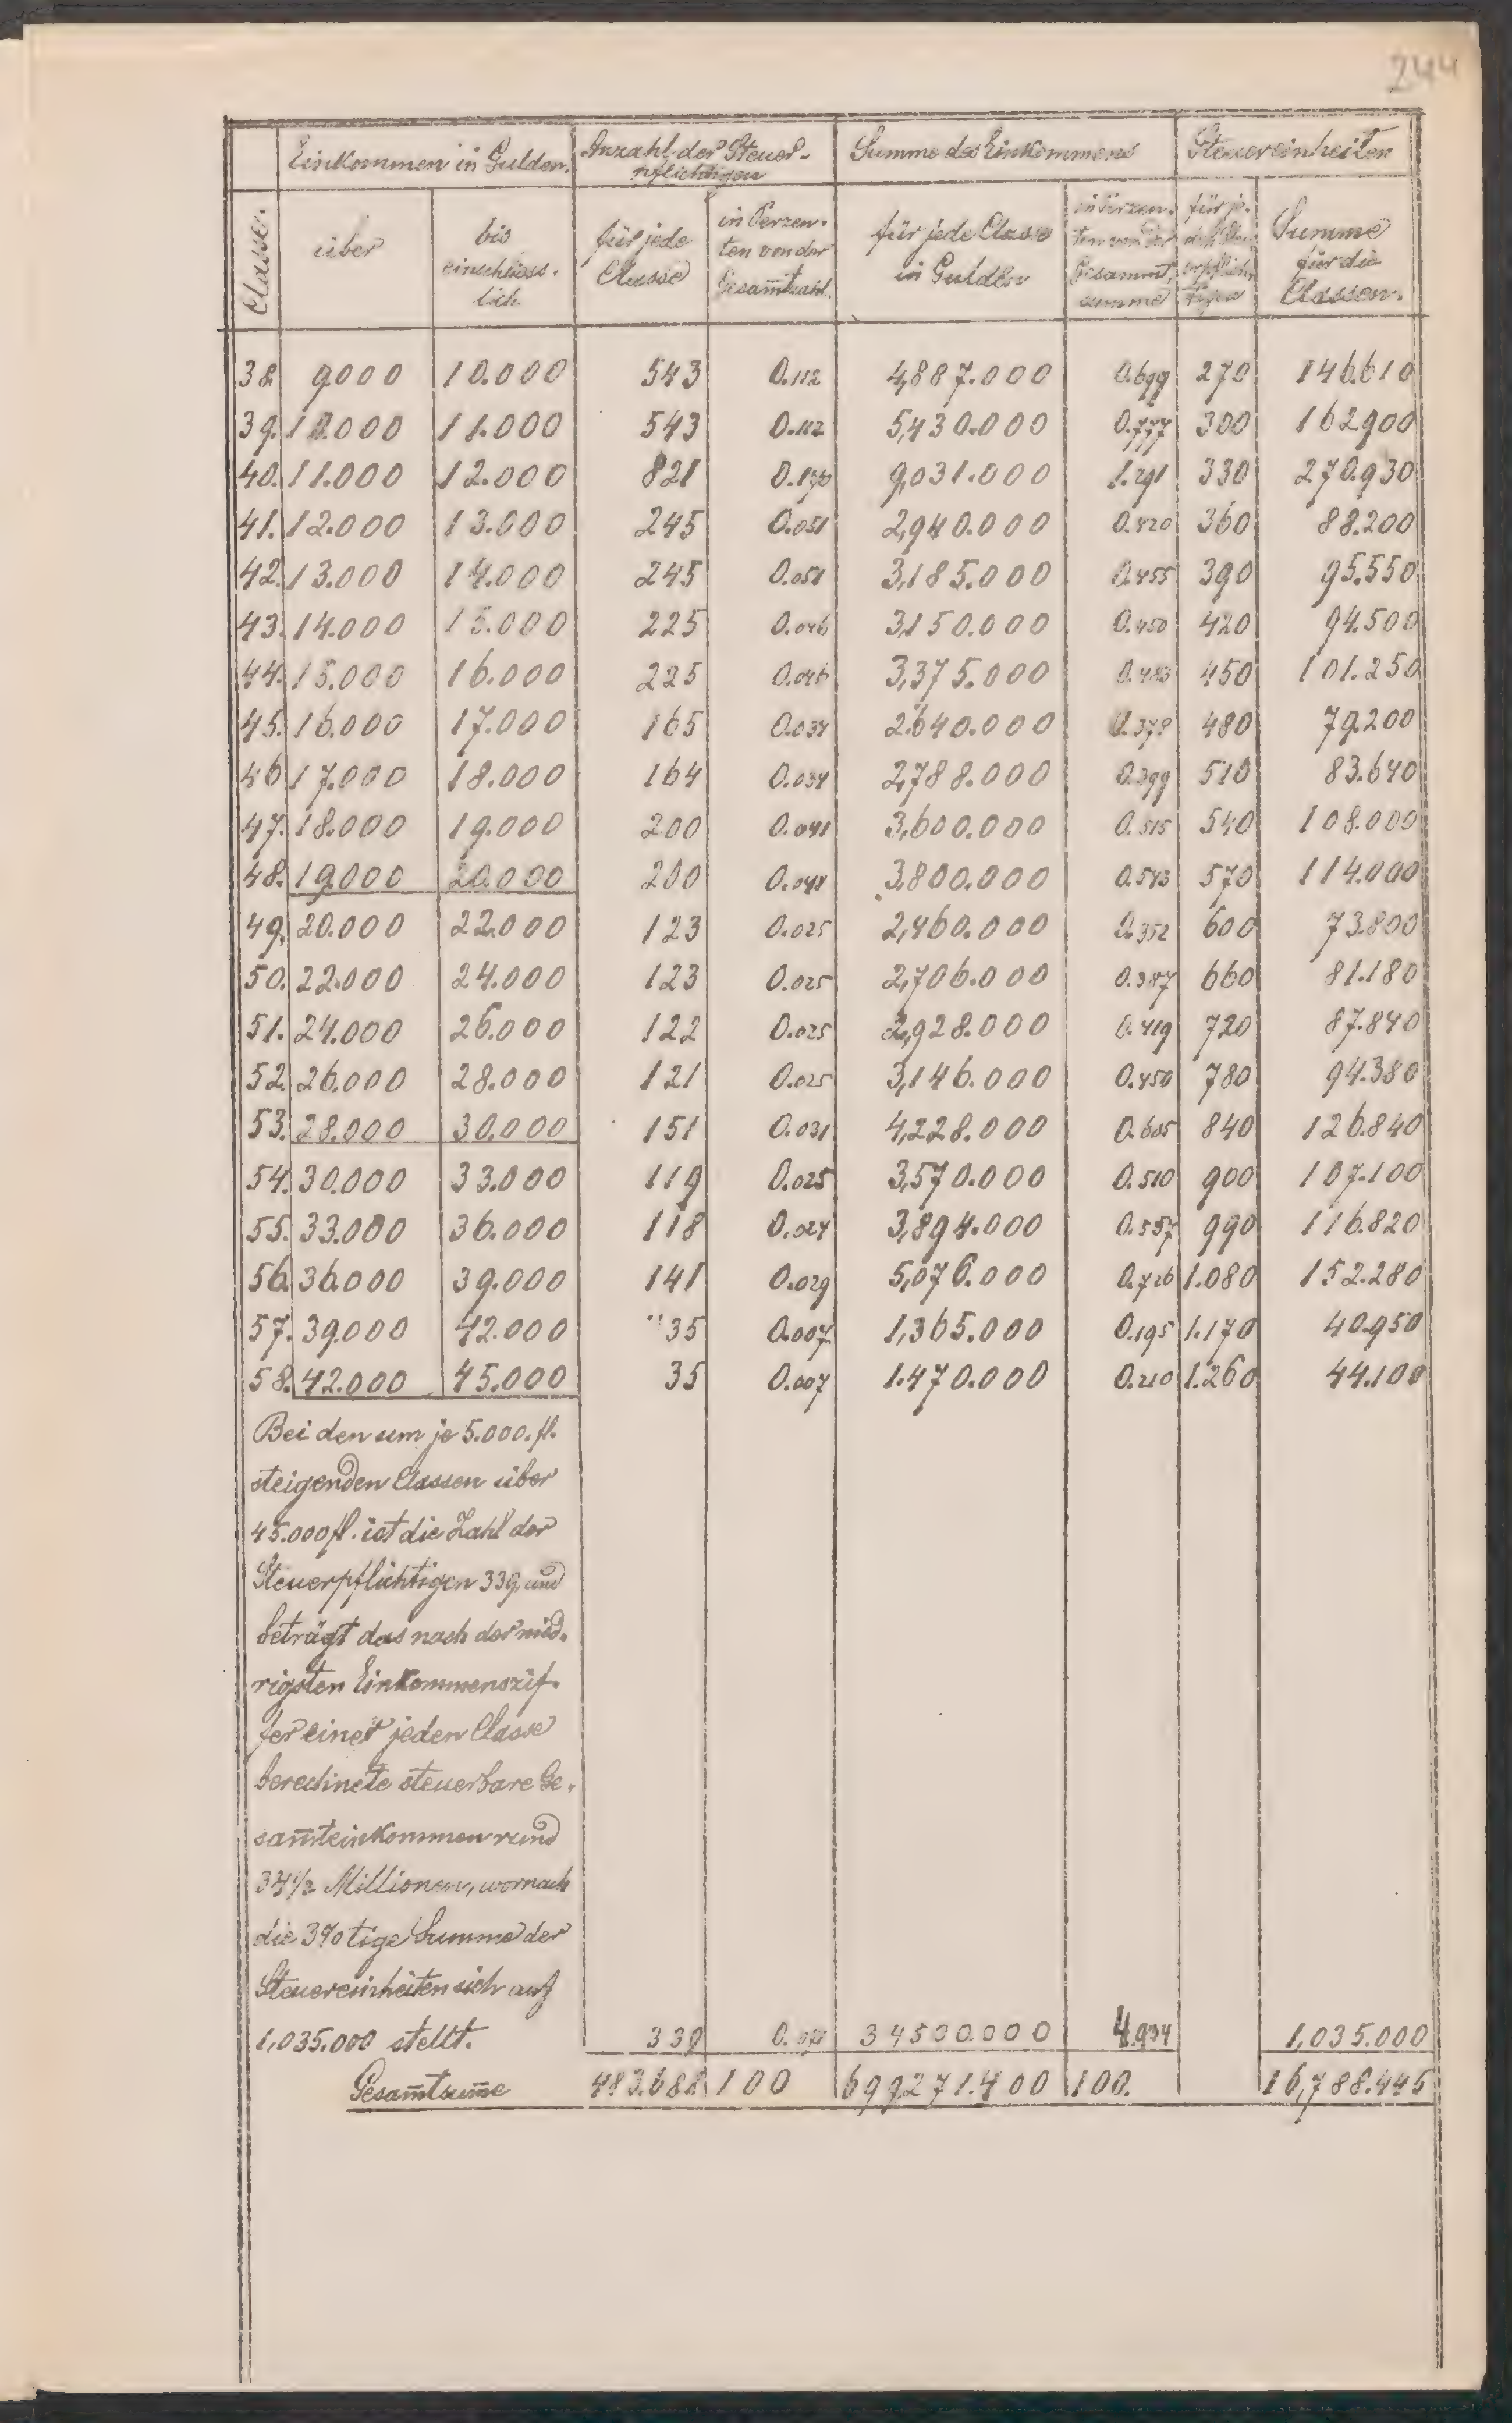 244
Einkommen in Gulden. Anzahl der Steuer- Summe des Einkommens Steuereinheiten
pflichtigen
Classe. über bis einschliess- lich. für jede Classe in Perzen- ten von der Gesam̅tzahl. für jede Classe in Gulden in Perzen- ten von der Gesammt- summe für je- den Steu- erpflich- tigen Summe für die Classen.
38. 9000 10.000 543 0.112 4,887.000 0.699 270 146.610
39. 10.000 11.000 543 0.112 5,430.000 0.777 300 162900
40. 11.000 12.000 821 0.170 9,031.000 1.291 330 270.930
41. 12.000 13.000 245 0.051 2,940.000 0.420 360 88.200
42. 13.000 14.000 245 0.051 3,185.000 0.455 390 95.550
43. 14.000 15.000 225 0.046 3,150.000 0.450 420 94.500
44. 15.000 16.000 225 0.046 3,375.000 0.483 450 101.250
45. 16.000 17.000 165 0.034 2.640.000 0.378 480 79.200
46 17.000 18.000 164 0.034 2,788.000 0.399 510 83.640
47. 18.000 19.000 200 0.041 3,600.000 0.515 540 108.000
48. 19.000 20.000 200 0.041 3.800.000 0.543 570 114.000
49. 20.000 22.000 123 0.025 2,460.000 0.352 600 73.800
50. 22.000 24.000 123 0.025 2,706.000 0.387 660 81.180
51. 24.000 26.000 122 0.025 2,928.000 0.419 720 87.840
52. 26.000 28.000 121 0.025 3,146.000 0.450 780 94.380
53. 28.000 30.000 151 0.031 4,228.000 0.605 840 126.840
54. 30.000 33.000 119 0.025 3,570.000 0.510 900 107.100
55. 33.000 36.000 118 0.024 3,894.000 0.557 990 116.820
56. 36.000 39.000 141 0.029 5,076.000 0.726 1.080 152.280
57. 39.000 42.000 35 0.007 1,365.000 0.195 1.170 40.950
58. 42.000 45.000 35 0.007 1.470.000 0.210 1.260 44.100
Bei den um je 5.000. fl.
steigenden Classen über
45.000 fl. ist die Zahl der
Steuerpflichtigen 339, und
beträgt das nach der nied-
rigsten Einkommenszif-
fer einer jeden Classe
berechnete steuerbare Ge-
sam̅teinkommen rund
34½ Millionen, wornach
die 3%tige Summe der
Steuereinheiten sich auf
1,035.000 stellt. 339 34500.000 4.934 1,035.000
Gesam̅tsum̅e 483.688 100 699,271.400 100. 16,788.445